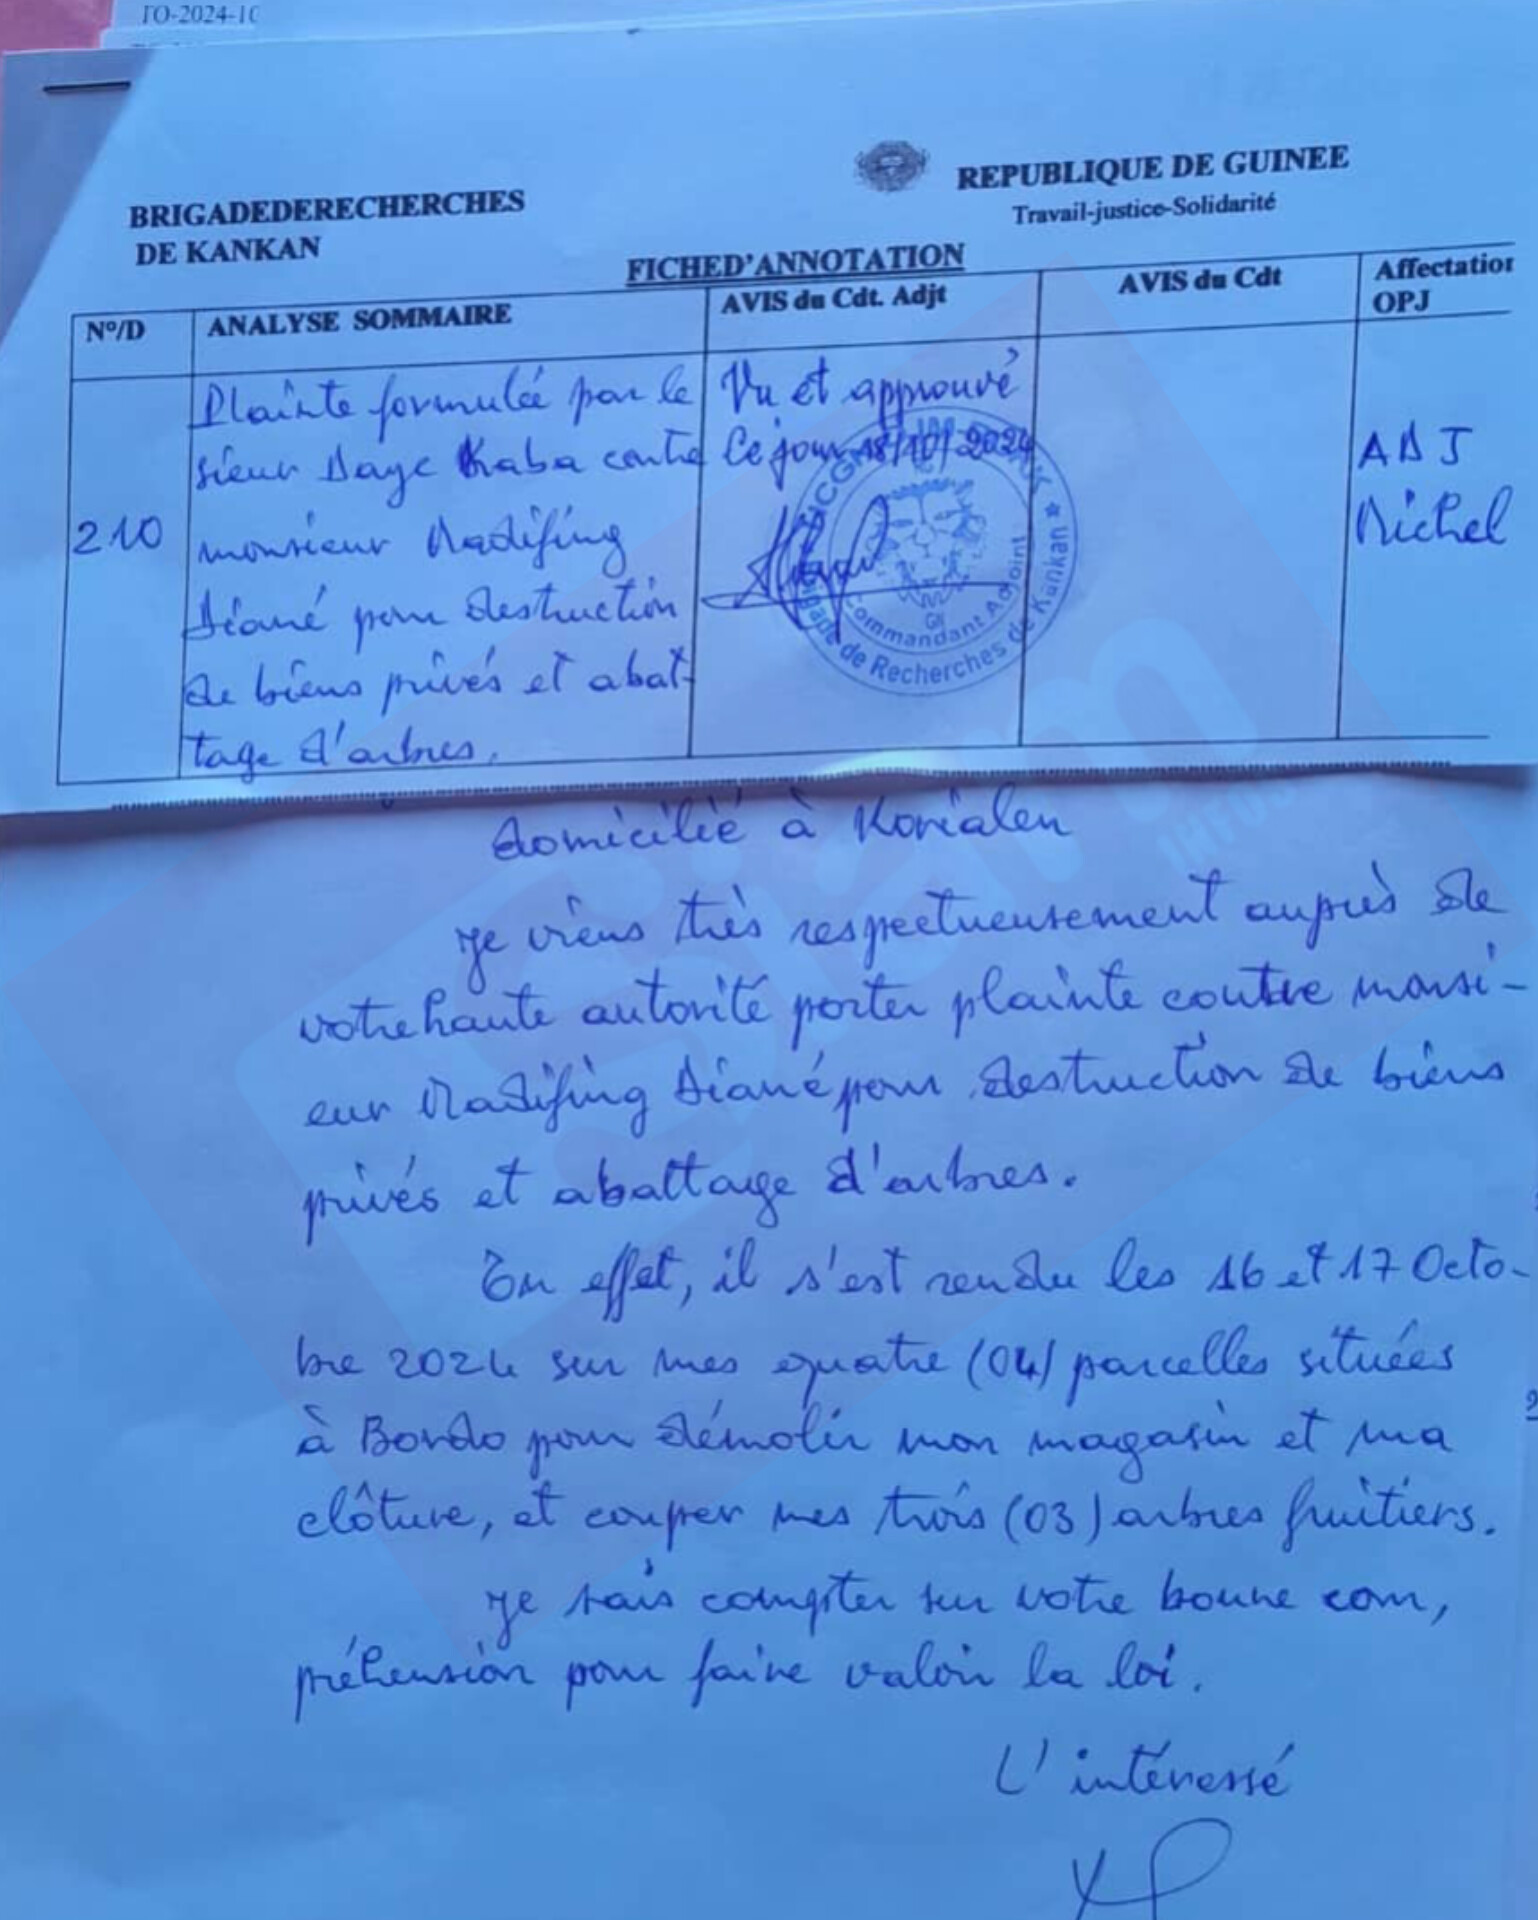 TO-2024-10
BRIGADEDERECHERCHES
DE KANKAN
REPUBLIQUE DE GUINEE
Travail-justice-Solidarité
FICHED'ANNOTATION
N°/D
ANALYSE SOMMAIRE
AVIS du Cdt. Adjt
AVIS du Cdt
Affectation
OPJ
210
Plainte formulée par le
sieur Daye Kaba contre
monsieur Madifing
Diané pour destruction
de biens privés et abat-
tage d'arbres.
Vu et approuvé
Ce jour 18/10/2024
Commandant Adjoint
Brigade de Recherches de Kankan
ADJ
Michel
domicilié à Korialen
Je viens très respectueusement auprès de
votre haute autorité porter plainte contre monsi-
eur Madifing Diané pour destruction de biens
privés et abattage d'arbres.
En effet, il s'est rendu les 16 et 17 Octo-
bre 2024 sur mes quatre (04) parcelles situées
à Bordo pour démolir mon magasin et ma
clôture, et couper mes trois (03) arbres fruitiers.
Je sais compter sur votre bonne com,
préhension pour faire valoir la loi.
L'intéressé